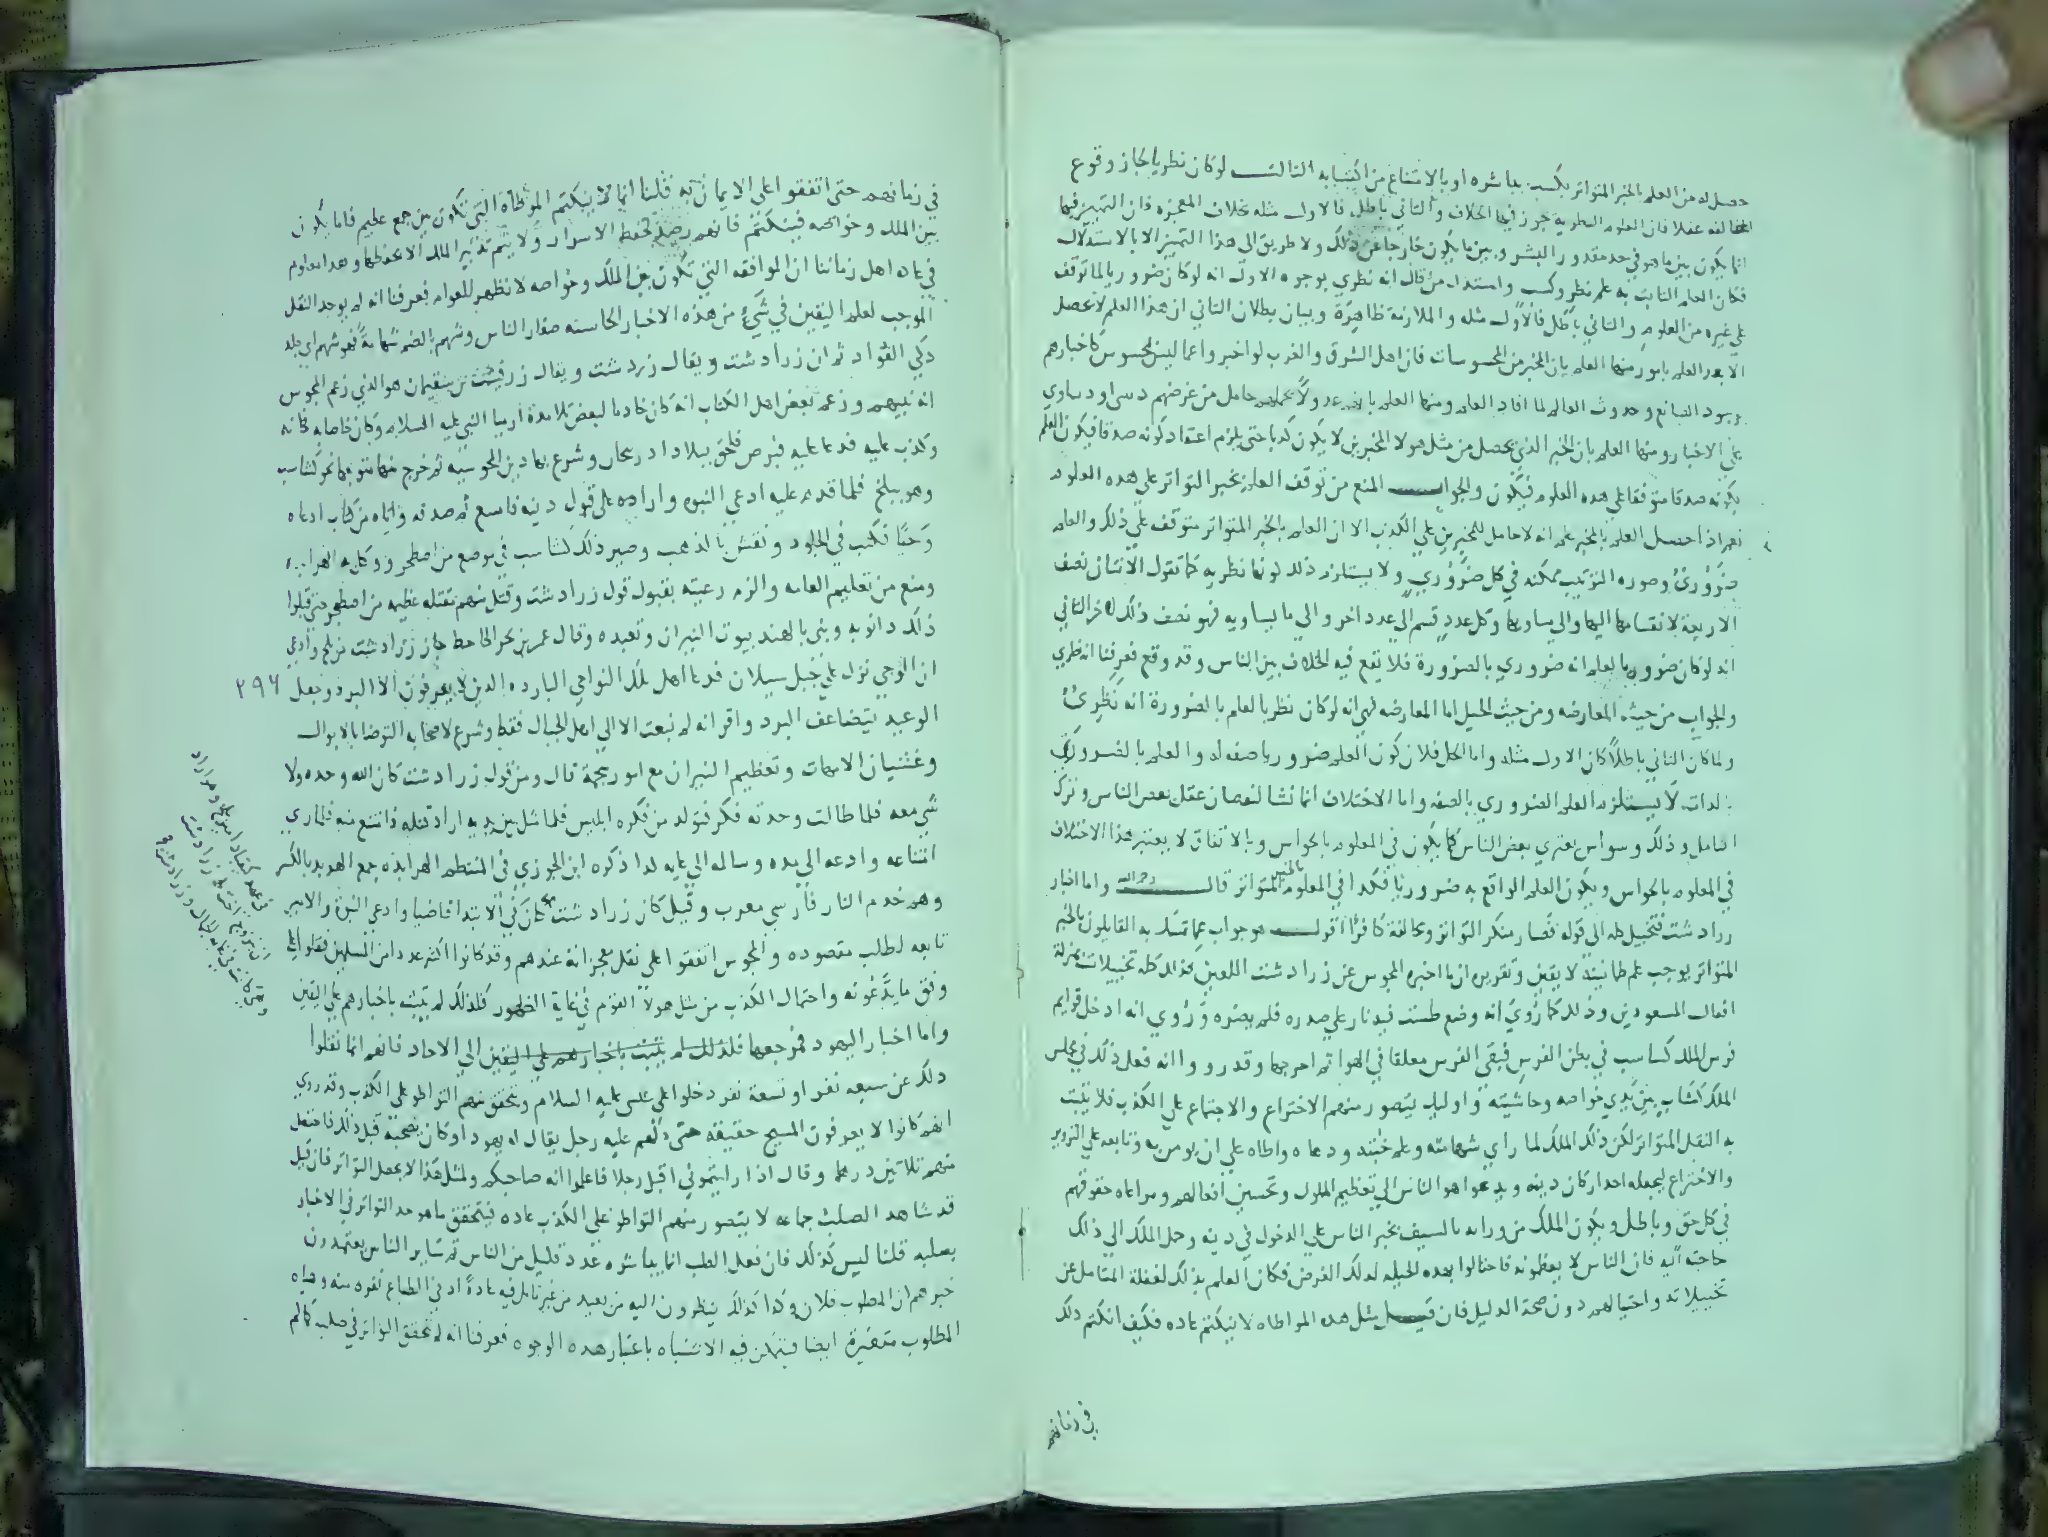 حصل له من العلم بالخبر المتواتر يكسب بمباشره او بالامتناع من اكتسابه الثالث لو كان نظريا لجاز وقوع
المخالفه عقلا فان العلوم النظريه يجوز فيها الخلاف والثاني باطل فالاول مثله بخلاف المعجزه فان التمييز فيها
انما يكون بين ما هو في حد مقدور البشر وبين ما يكون خارجا عن ذلك ولا طريق الى هذا التمييز الا بالاستدلال
فكان العلم الثابت به علم نظر وكسب واستدل من قال انه نظري بوجوه الاول انه لو كان ضروريا لما توقف
على غيره من العلوم والثاني باطل فالاول مثله والملازمة ظاهرة وبيان بطلان الثاني ان هذا العلم لا يحصل
الا بعد العلم بامور منها العلم بان المخبر من المحسوسات فان اهل الشرق والغرب لو اخبروا عما ليس بمحسوس كاخبارهم
بوجود الصانع وحدوث العالم لما افاد العلم ومنها العلم بانه لا حامل من غرضهم ديني او دنياوي
على الاخبار ومنها العلم بان الخبر الذي يحصل من مثل هولا المخبرين لا يكون كذبا حتى يلزم اعتقاد كونه صدقا فيكون العلم
بكونه صدقا متوقفا على هذه العلوم فيكون والجواب المنع من توقف العلم بخبر التواتر على هذه العلوم
نعم اذا حصل العلم بالمخبر علم انه لا حامل للمخبرين على الكذب الا ان العلم بالخبر المتواتر متوقف على ذلك والعلم
ضروري وصوره الترتيب ممكنه في كل ضروري ولا يستلزم ذلك كونها نظريه كما تقول الاثنان نصف
الاربعة لانقسامها اليها والى مساويها وكل عدد قسم الى عدد اخر والى ما يساويه فهو نصف ذلك الاخر الثاني
انه لو كان ضروريا لعلم انه ضروري بالضرورة فلا يقع فيه الخلاف بين الناس وقد وقع فعرفنا انه نظري
والجواب من حيث المعارضه ومن حيث الحل اما المعارضه فهي انه لو كان نظريا لعلم بالضرورة انه نظري
ولما كان الثاني باطلا كان الاول مثله واما الحل فلان كون العلم ضروريا صفه له والعلم بالضروري
لذاته لا يستلزم العلم الضروري بالصفه واما الاختلاف انما نشا لنقصان عقل بعض الناس وترك
التامل وذلك وسواس يعتري بعض الناس كما يكون في المعلوم بالحواس وبالاتفاق لا يعتبر هذا الاختلاف
في المعلوم بالحواس ويكون العلم الواقع به ضروريا فكذا في المعلوم بالخبر المتواتر قال رحمه الله واما اخبار
زرادشت فتخييل كله الى قوله فصار منكر التواتر ومخالفه كافرا اقول هو جواب عما تمسك به القايلون بالخبر
المتواتر يوجب علم طمانينة لا يقين وتقريره ان ما اخبره المجوس عن زرادشت اللعين فذلك كله تخييلات بمنزلة
افعال المسعودين وذلك كما روي انه وضع طست فيه نار على صدره فلم يضره وروي انه ادخل قوايم
فرس الملك كساسب في بطن الفرس فبقى الفرس معلقا في الهوا ثم اخرجها وقد رووا انه فعل ذلك في مجلس
الملك كشاب بين يدي خواصه وحاشيته واوليك يتصور منهم الاختراع والاجتماع على الكذب فلا يثبت
به النقل المتواتر لكن ذلك الملك لما راي شهامته وعلم خبثه ودعاه واطاه على ان يومن به وتابعه على التزوير
والاختراع ليجعله احد اركان دينه ويدعوا هو الناس الى تعظيم الملوك وتحسين افعالهم ومراعاه حقوقهم
في كل حق وباطل ويكون الملك من ورائه بالسيف يخبر الناس على الدخول في دينه وحمل الملك الى ذلك
حاجته اليه فان الناس لا يعظمونه فاحتالوا بهذه الحيله لذلك الغرض فكان العلم بذلك لغفلة المتامل عن
تخييلاته واحتيالهم دون صحة الدليل فان قيل مثل هذه المواطاه لا ينكتم عاده فكيف انكتم ذلك
في زمانهم
في زمانهم حتى اتفقوا على الايمان به قلنا انما لا ينكتم المواطاة التي تكون من جمع عظيم فاما ما يكون
بين الملك وخواصه فينكتم فانهم رصد لحفظ الاسرار ولا يتم تدبير الملك الا بحفظها وهذا معلوم
في عاده اهل زماننا ان الموافقه التي تكون بين الملك وخواصه لا تظهر للعوام فعرفنا انه لم يوجد النقل
الموجب لعلم اليقين في شيء من هذه الاخبار الحاسنه صغار الناس وشهم بالضم شهامة فهو شهم اي جلد
ذكي الفواد ثم ان زرادشت ويقال زردشت ويقال زرفشت بن سقيمان هو الذي زعم المجوس
انه نبيهم وزعم بعض اهل الكتاب انه كان خادما لبعض تلامذة ارميا النبي عليه السلام وكان خاصا به فخانه
وكذب عليه فدعا عليه فبرص فلحق ببلاد اذربيجان وشرع بها دين المجوسيه ثم خرج منها متوجها نحو كشتاسب
وهو ببلخ فلما قدم عليه ادعي النبوه واراده على قبول دينه فامتنع ثم صدقه واتاه من كتاب ادعاه
وحيا فكتب في الجلود ونقش بالذهب وصير ذلك كشتاسب في موضع من اصطخر ووكل به الهرابذه
ومنع من تعليمه العامه والزم رعيته بقبول قول زرادشت وقتل منهم مقتله عظيمه من اصطخر حتى قبلوا
ذلك دانو به وبنى بالهند بيوت النيران وتعبده وقال عمر بن بحر الجاحظ جاز زرادشت من بلخ وادعي
ان الوحي نزل على جبل سيلان فدعا اهل تلك النواحي البارده الذين لا يعرفون الا البرد وجعل ٢٩٦
الوعيد بتضاعف البرد واقر انه لم يبعث الا الى اهل الجبال فقط وشرع لاصحابه التوضا بالابوال
وغشيان الامهات وتعظيم النيران مع امور سمجة قال ومن قول زرادشت كان الله وحده ولا
شي معه فلما طالت وحدته فكر فتولد من فكره ابليس فلما مثل بين يديه اراد قتله فامتنع منه فلما راي
امتناعه وادعه الى مده وساله الى غايه لذا ذكره ابن الجوزي في المنتظم الهرابذه جمع الهربذ بالكسر
وهو خدم النار فارسي معرب وقيل كان زرادشت كان في الابتدا قاضيا وادعي النبوة والامير
تابعه لطلب مقصوده والمجوس اتفقوا على نقل معجزاته عندهم وقد كانوا اكثر عددا من المسلمين فنقلوا على
وفق ما يدعونه واحتمال الكذب من مثل هولا القوم في غاية الظهور فلذلك لم يثبت باخبارهم علم اليقين
واما اخبار اليهود فمرجعها فلذلك لم يثبت باخبارهم علم اليقين الى الاحاد فانهم انما نقلوا
ذلك عن سبعه نفر او تسعة نفر دخلوا على عيسى عليه السلام وتحقق منهم التواطو على الكذب وقد روي
انهم كانوا لا يعرفون المسيح حقيقه حتى دلهم عليه رجل يقال له يهودا وكان يصحبه قبل ذلك فاجتعل
منهم ثلاثين درهما وقال اذا رايتموني اقبل رجلا فاعلموا انه صاحبكم ولمثل هذا لا يحصل التواتر فان قيل
قد شاهد الصلب جماعه لا يتصور منهم التواطو على الكذب عاده فيتحقق ما هو حد التواتر في الاخبار
بصلبه قلنا ليس كذلك فان فعل الصلب انما يباشره عدد قليل من الناس ثم ساير الناس يعتمدون
خبرهم ان المصلوب فلان وكذا كذلك ينظرون اليه من بعيد من غير تامل فيه عادة اذ في الطباع نفره منه وحلاه
المصلوب متغيرة ايضا فيتمكن فيه الاشتباه باعتبار هذه الوجوه فعرفنا انه لا يتحقق التواتر في صلبه كما لم